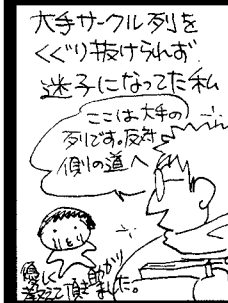 大手サークル列を
くぐり抜けられず
迷子になってた私
ここは大手の
列です。反対
側の道へ
優しく
教えて頂き助かり
ました。